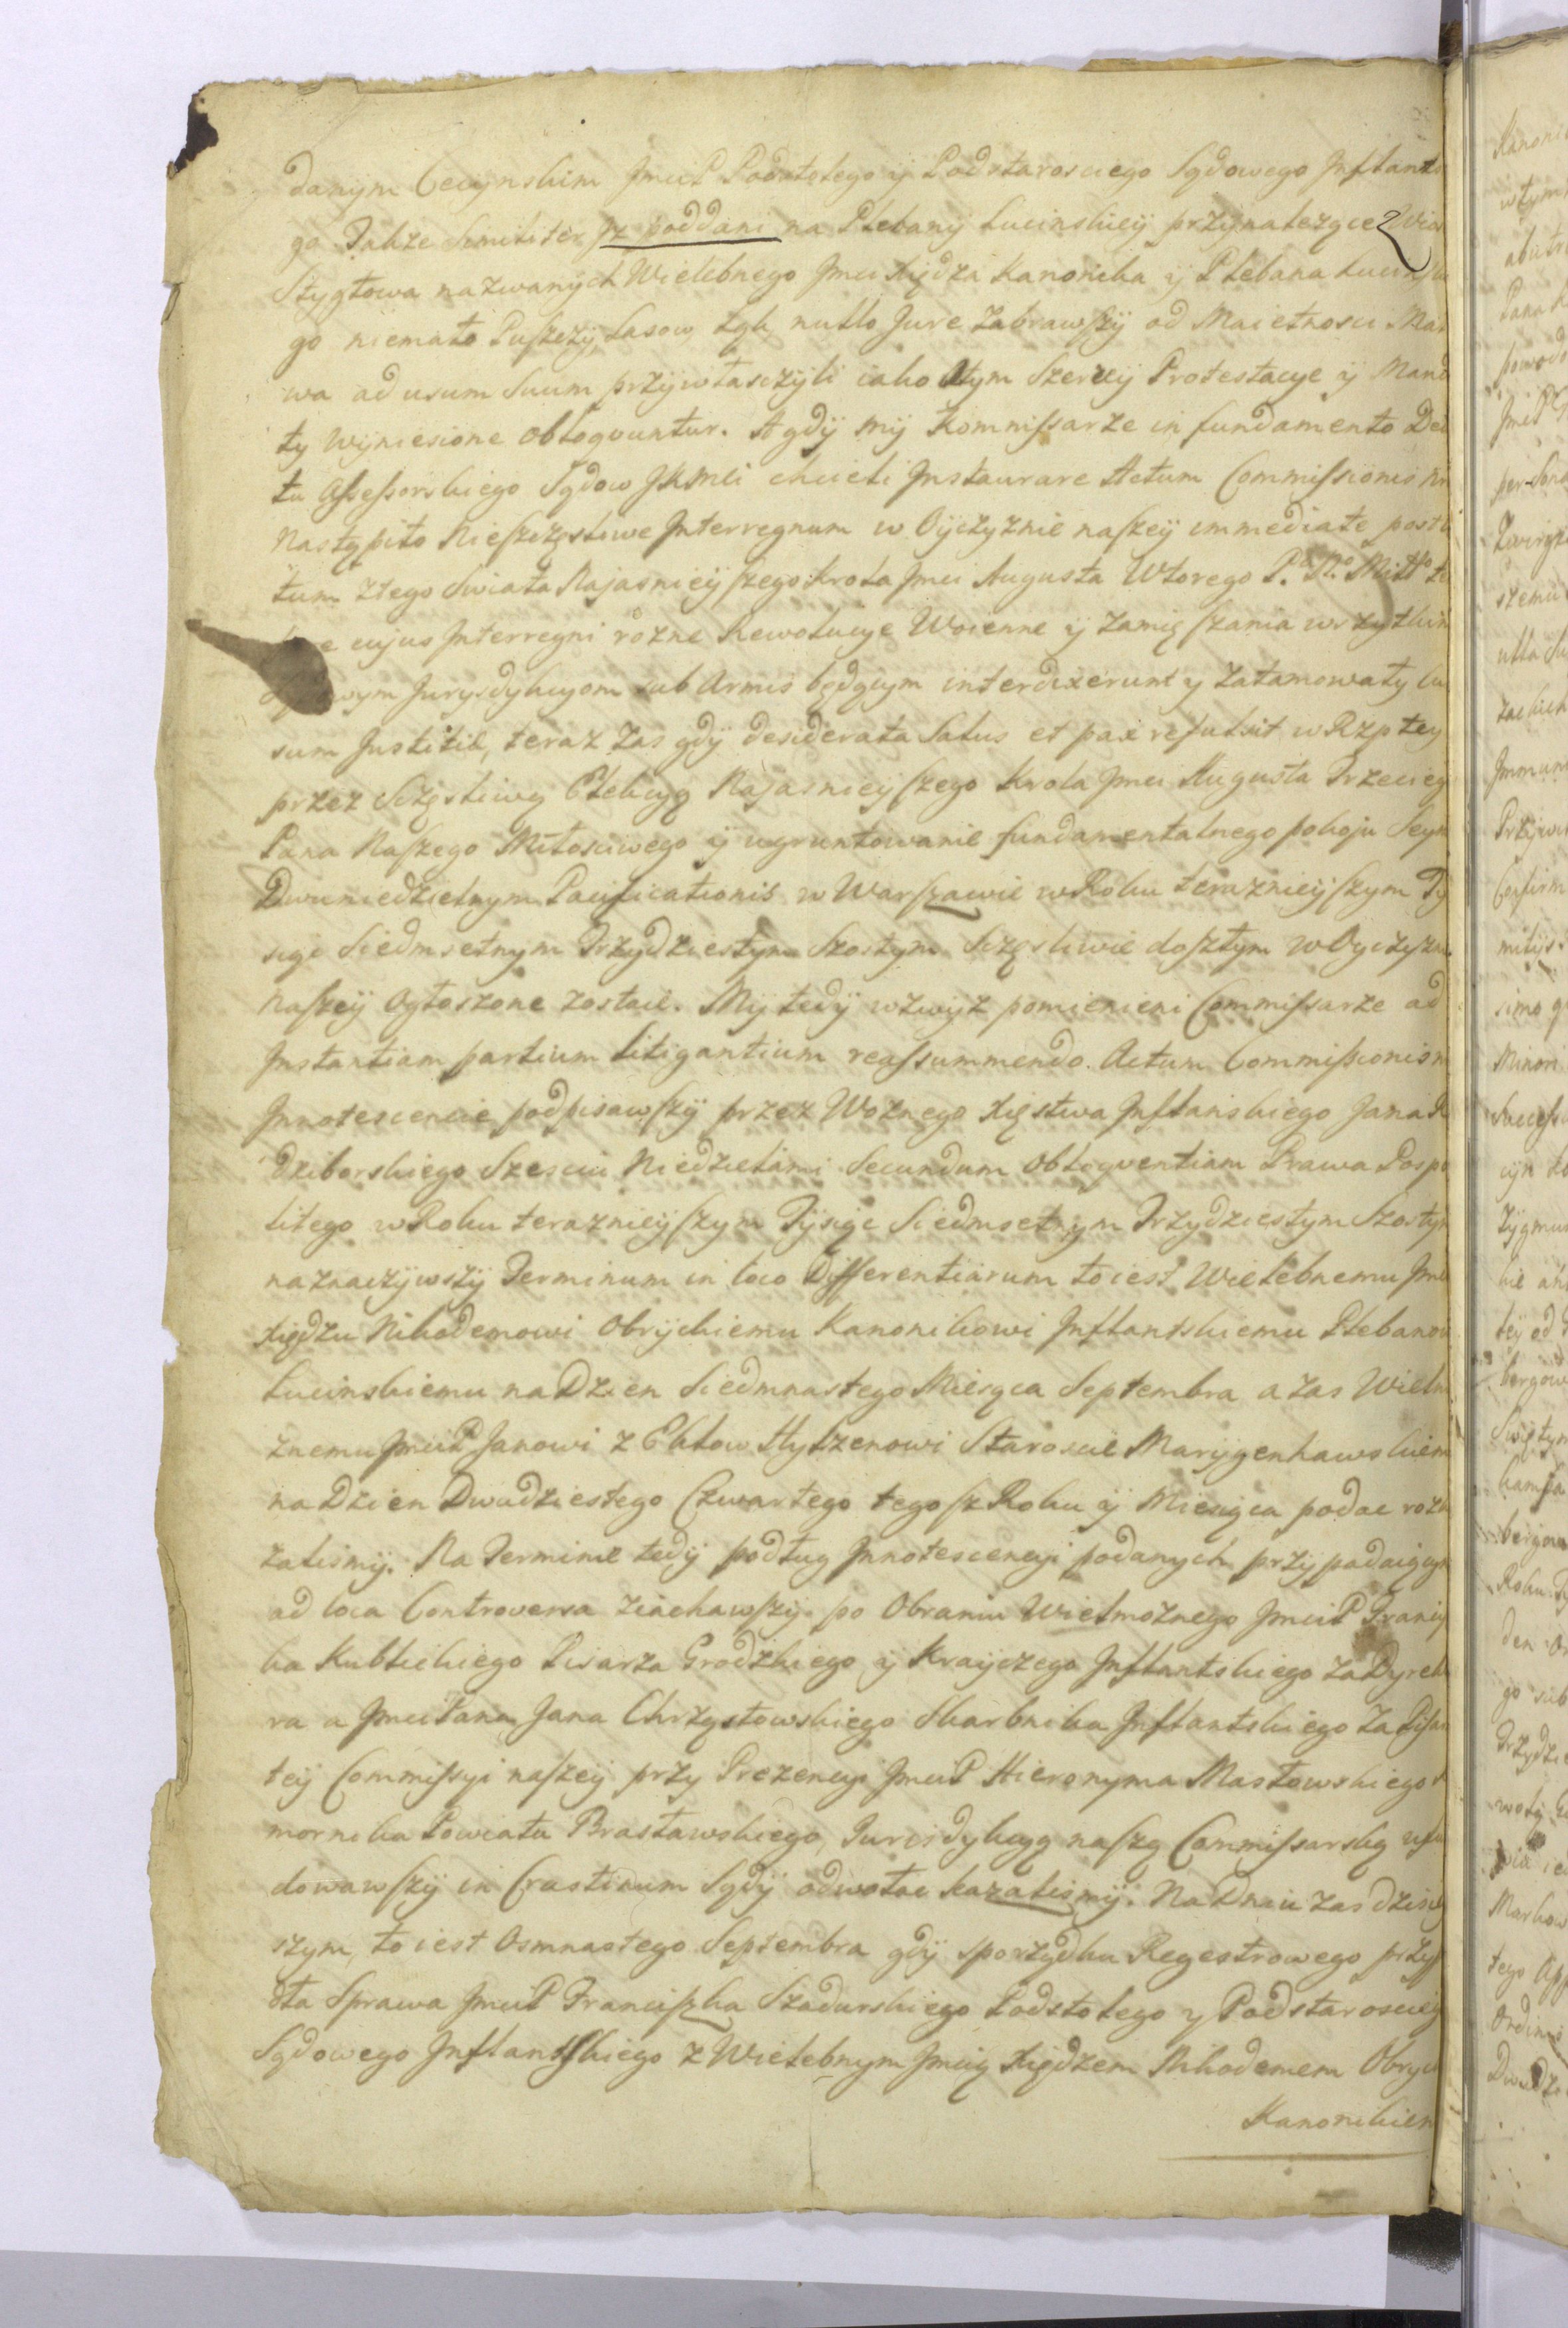 danym Cecynskim JmciP Podstolego ÿ Podstarosciego Sądowego Inflants
go Takze Similiter Jz poddani na Plebanÿ Lucinskieÿ przÿnalezące z Wios
Stygłowa nazwanÿch Wielebnego Jmci Xiędza Kanonika ÿ Plebana Lucinski
go niemało Puszczÿ, Lasow, Łąk, nullo Jure Zabrawszÿ od Maiętnosci Mar
wa ad usum Suum przÿwłasczÿli iako Otÿm Szerzeÿ Protestacye ÿ Mand
ty Wÿniesione obloquuntur. A gdÿ mÿ Kommissarze in fundamento Dek
tu Assessorskiego Sądow JKMci chcieli Instaurare Actum Commissionis
Nastąpiło Nieszczęsłowe Interregnum w Oÿczyznie naszeÿ immediate post
tum z tego Swiata Najasnieÿszego Krola Jmci Augusta Wtorego
cujus Interregni rozne Rewolucye Woienne ÿ Zamięszania wszytkim
wym Jurysdykcyom sub Armis będącym interdixerunt y Zatamowały cu
sum Justitiæ, teraz Zas gdÿ desiderata Salus et pax refulsit w Rzptey
przez Sczęsliwą Elekcyą Najasnieÿszego Krola Jmci Augusta Trzecieg
Pana Naszego Miłosciwego ÿ ugruntowanie fundamentalnego pokoju Seym
Dwuniedzielnym Pacificationis w Warszawie w Roku teraznieÿszym Ty
siąc Siedmsetnym Trzydziestym Szostym Sczęsliwie doszłym w Oyczyzn
Naszeÿ Ogłoszone zostaie. Mÿ tedÿ wzwÿz pomienieni Commissarze ad
Instantiam partium litigantium reassummendo Actum Commissionis
Innotescencie podpisawszÿ przez Woznego Xięstwa Inflanskiego Jana
dziborskiego Szescią Niedzielami Secundum Obloquentiam Prawa Posp
litego w Roku teraznieÿszym Tÿsiąc Siedmsetnym Trzydziestym Szostym
naznaczÿwszÿ Terminum in loco Differentiarum to iest Wielebnemu Jmci
Xiędzu Nikodemowi Obrÿckiemu Kanonikowi Inflantskiemu Plebanow
Lucinskiemu na Dzien Siedmnastego Miesąca Septembra a Zas Wielm
znemu JmciP Janowi z Ekłow Hylzenowi Staroscie Marÿgenhawskiem
na Dzien Dwudziestego Czwartego tegosz Roku ÿ Miesiąca podac rozk
zalismÿ. Na Terminie tedÿ podług Innotescencyi podanych przÿpadaiącym
ad loca Controversa ziachawszÿ po Obraniu Wielmoznego JmciP Franciß
ka Kublickiego Pisarza Grodzkiego ÿ Kraÿczego Inflantskiego Za Dyrekt
ra a Jmci Pana Jana Chrząstowskiego Skarbnika Inflantskiego Za Pisar
teÿ Commissyi naszeÿ przy Prezencyi JmciP Hieronyma Masłowskiego
mornika Powiatu Brasławskiego, Jurisdykcyą naszą Commissarską ufun
dowawszÿ in Crastinum Sądÿ odwołac kazalismÿ. Na Dniu Zas dzisiey
szym, to iest Osmnastego Septembra gdÿ z porządku Regestrowego przyp
dła Sprawa JmciP Franciszka Szadurskiego Podstolego y Podstarosciego
Sądowego Inflantskiego z Wielebnym Jmcią Xiędzem Nikodemem Obryc
Kanonikiem